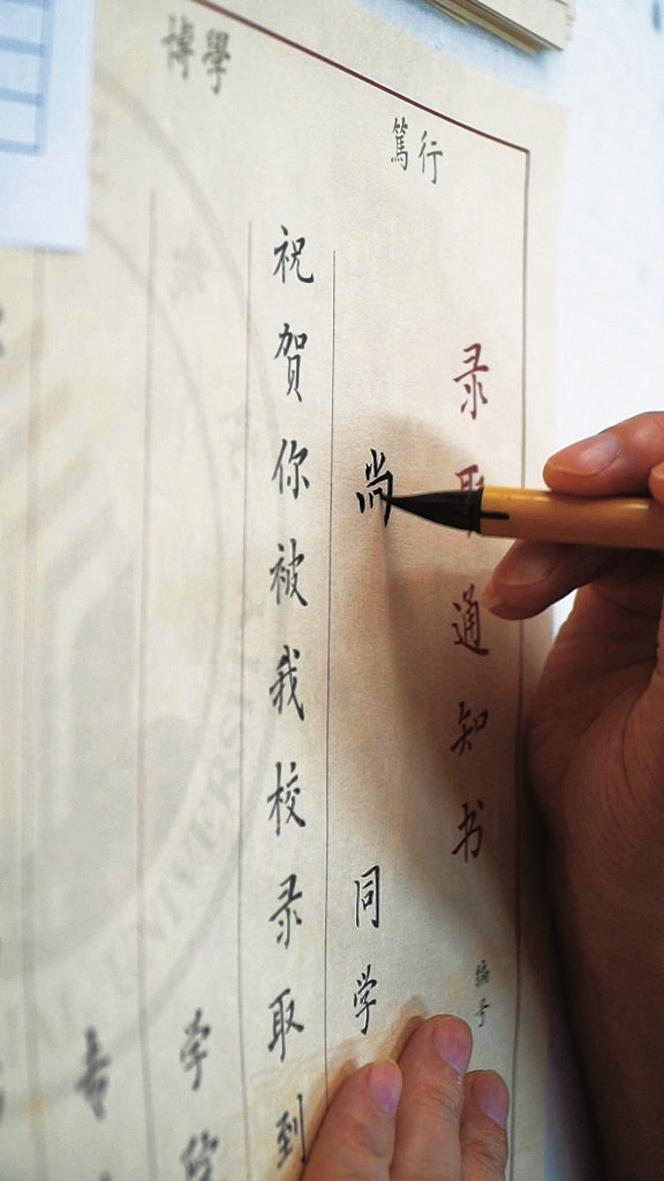 博學
篤行
录取通知书
编号
尚
同学
祝贺你被我校录取到
学院
专
UNIVERSITY